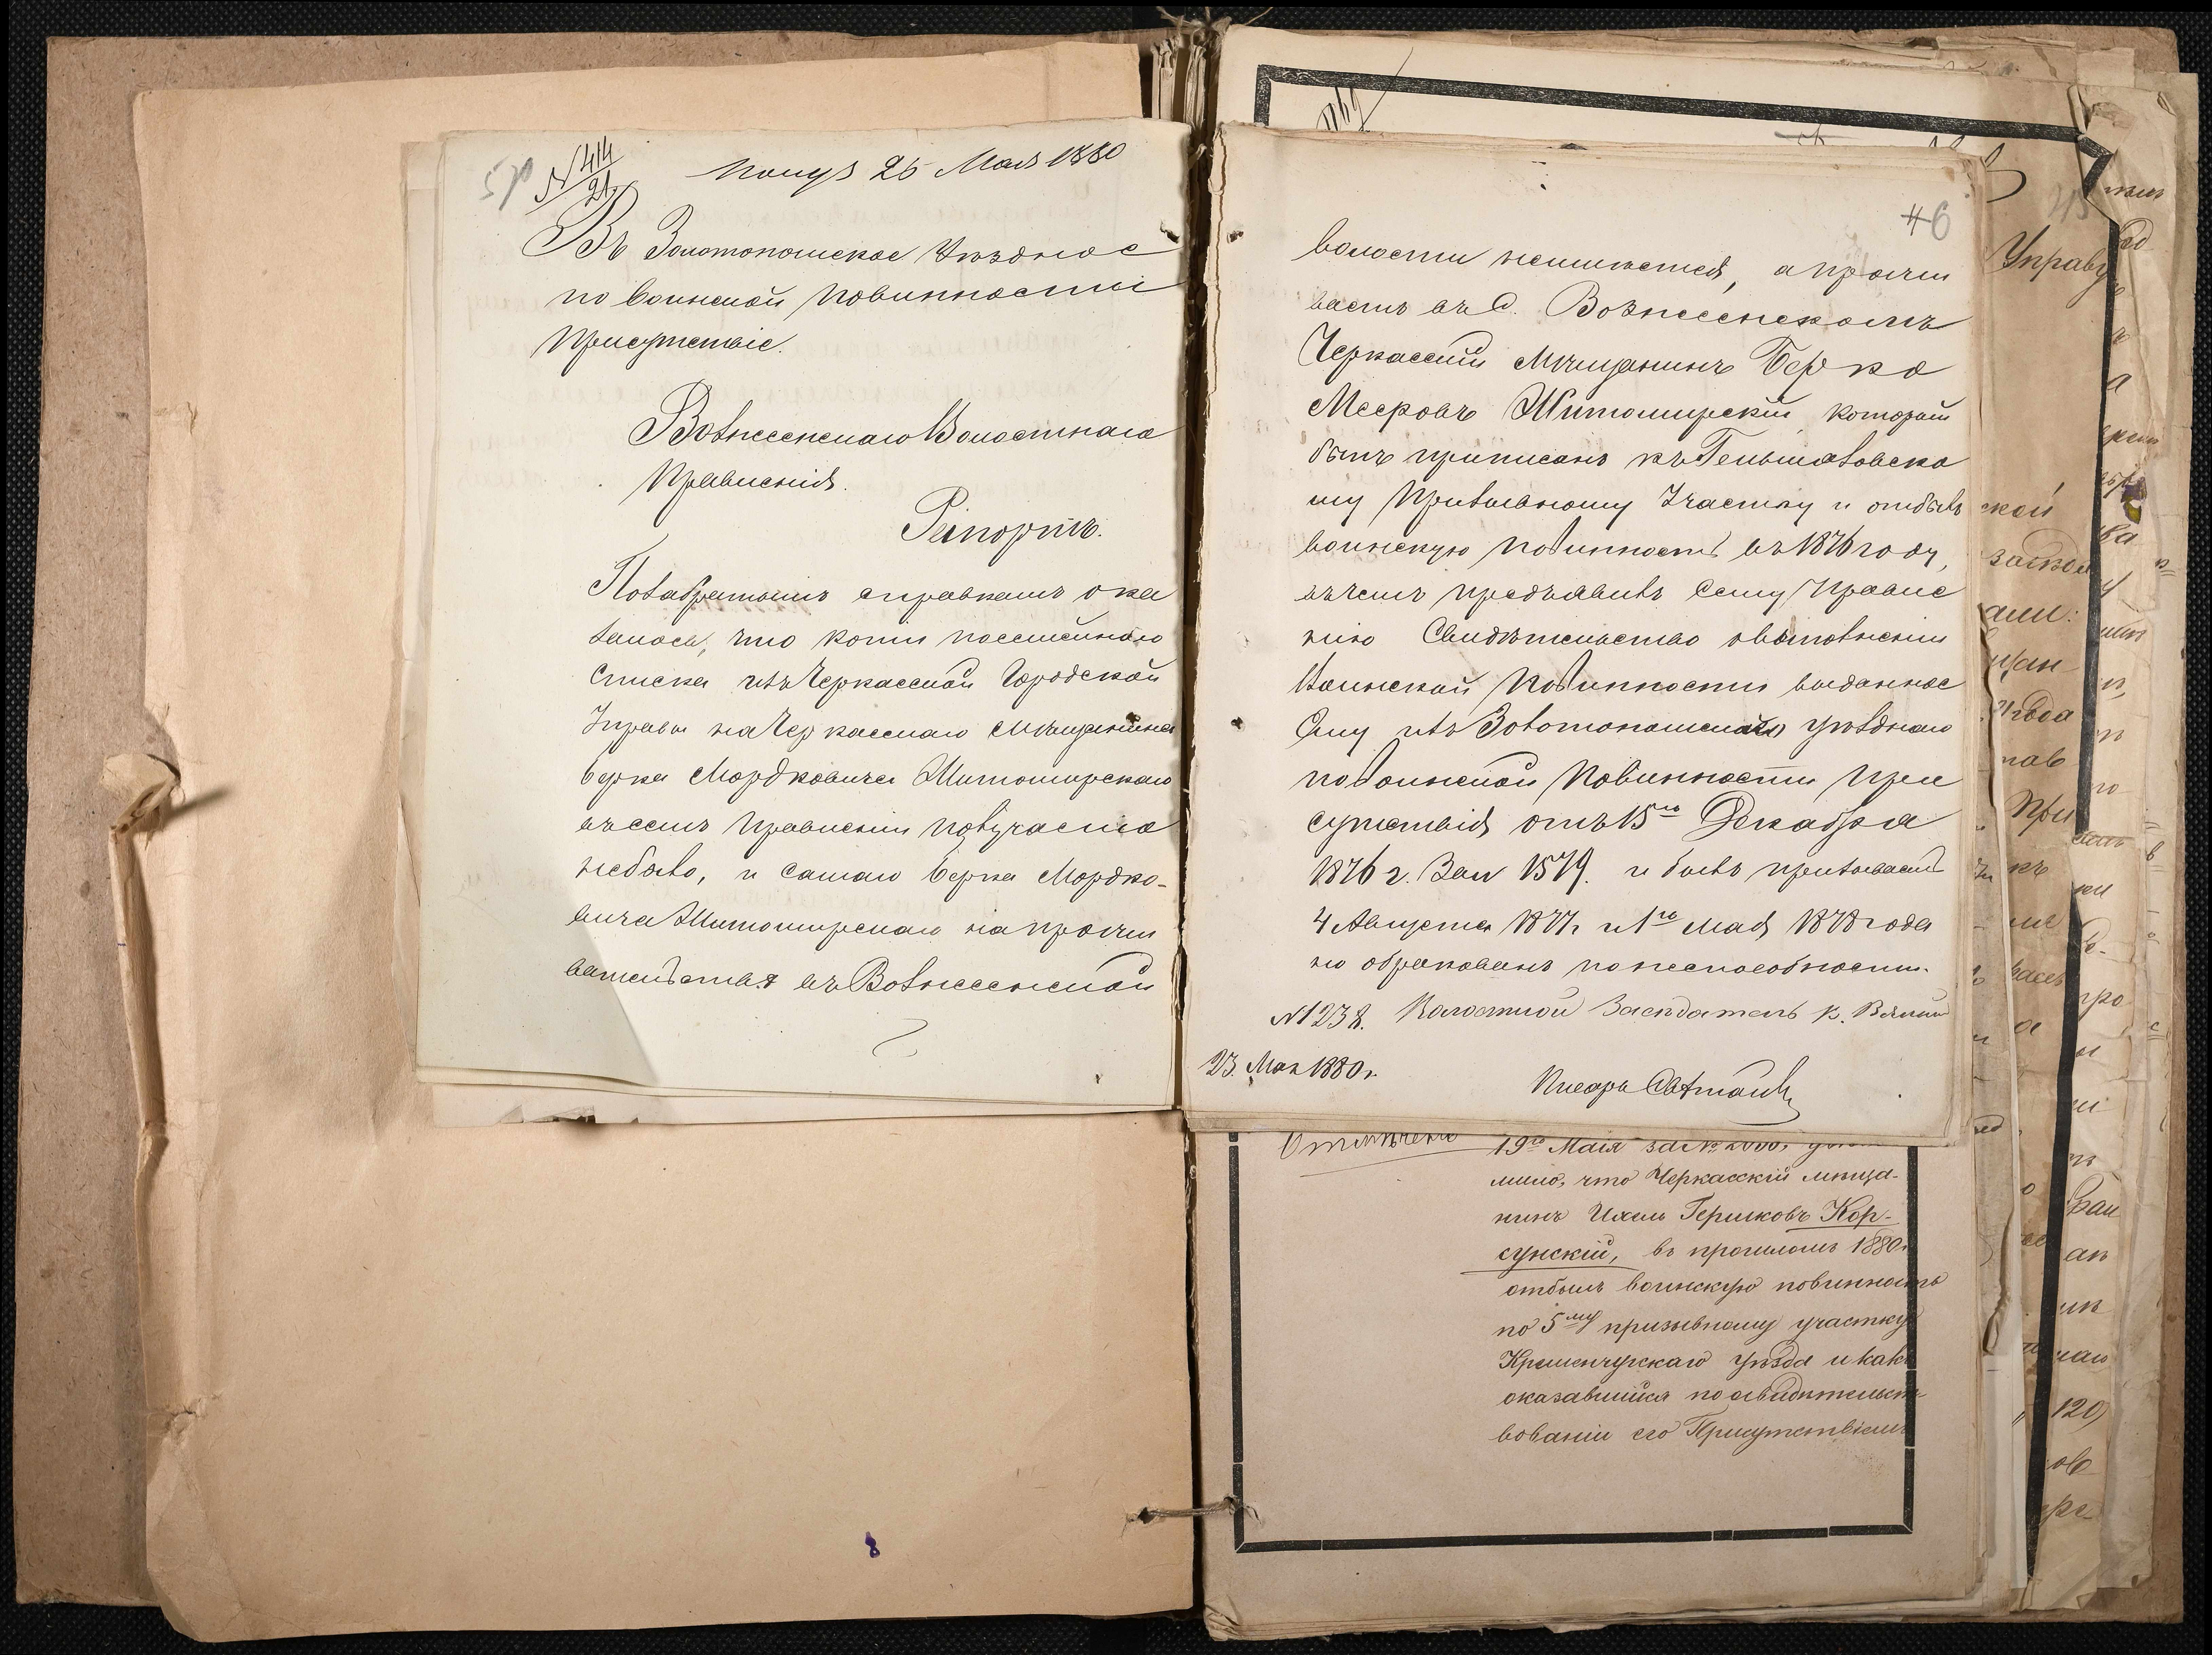 № 414
21
Получ 26 Мая 1880
Въ Золотоношское Уѣздное
по воинской повинности
Присутствіе.
Вознесенскаго Волостнаго
Правленія.
Рапортъ.
Позабратымъ справкамъ ока
залось, что копіи посемейнаго
списка изъ Черкасской Городской
Управы на Черкасскаго Мѣщанина
Берка Мордковича Житомирскаго
въсемъ Правленіи
небыло, и самаго Берка Мордко-
вича Житомирскаго на прожи
вательства въ Вознесенской
46
волости неимѣется, а прожи
ваетъ въ С. Вознесенскомъ
Черкасскій Мѣщанинъ Берко
Мееровъ Житомирскій который
былъ приписанъ къ Гельмязовско
му Призывному Участку и отбылъ
воинскую повинность въ 1876 году,
въчемъ предъявилъ Сему Правле
нію Свидѣтельство
Воинской Повинности выданное
Ему изъ Золотоношскаго уѣзднаго
по воинской Повинности При
сутствія отъ 15го Декабря
1876 г. За № 1579. и былъ призываемъ
4 Августа 1877 г и 1го Мая 1878 года
но обракованъ понеспособности.
№ 1238. Волостной Засѣдатель К.
23. Мая 1880 г.
Писарь
Отмѣчено
19го Маія за № 2000,
мило, что Черкасскій мѣща-
нинъ Ихель Гершковъ Кор-
сунскій, въ прошломъ 1880 г
отбылъ воинскую повинность
по 5му призывному участку
Кременчугскаго уѣзда и какъ
оказавшійся по освидѣтельст-
вованіи его Присутствіемъ
Управу
ской